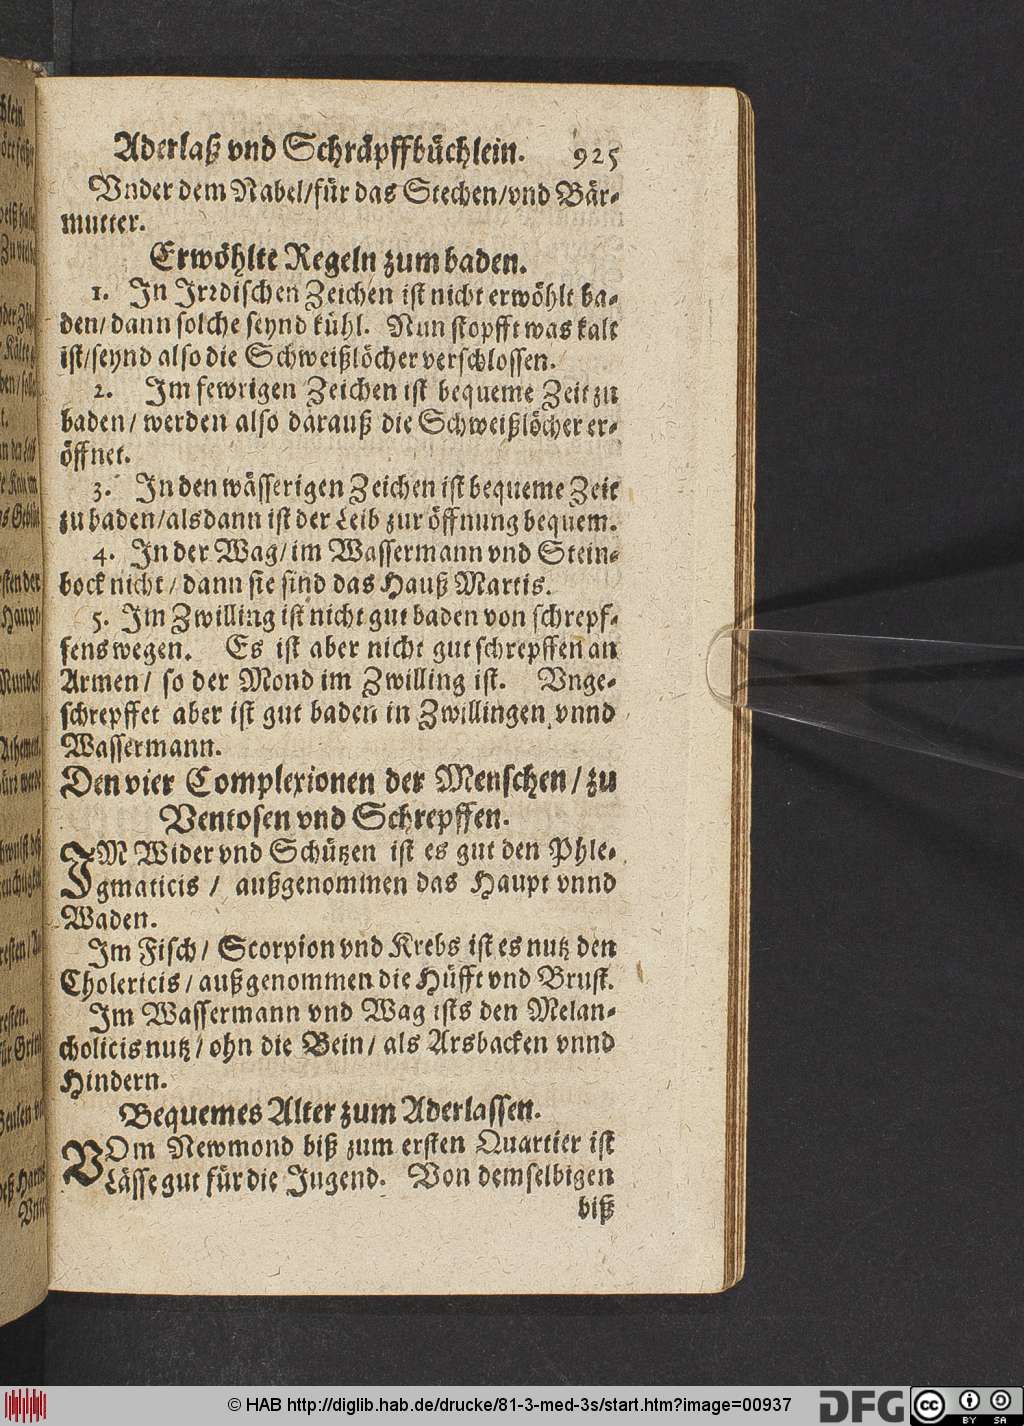 Aderlaß vnd Schräpffbüchlein. 925
Vnder dem Nabel/für das Stechen/vnd Bär-
mutter.
Erwöhlte Regeln zum baden.
1. In Irrdischen Zeichen ist nicht erwöhlt ba-
den/dann solche seynd kühl. Nun stopfft was kalt
ist/seynd also die Schweißlöcher verschlossen.
2. Im fewrigen Zeichen ist bequeme Zeit zu
baden/ werden also darauß die Schweißlöcher er-
öffnet.
3. In den wässerigen Zeichen ist bequeme Zeit
zu baden/alsdann ist der Leib zur öffnung bequem.
4. In der Wag/im Wassermann vnd Stein-
bock nicht/dann sie sind das Hauß Martis.
5. Im Zwilling ist nicht gut baden von schrepf-
fens wegen. Es ist aber nicht gut schrepffen an
Armen/ so der Mond im Zwilling ist. Vnge-
schrepffet aber ist gut baden in Zwillingen vnnd
Wassermann.
Den vier Complexionen der Menschen/zu
Ventosen vnd Schrepffen.
IM Wider vnd Schützen ist es gut den Phle-
gmaticis/ außgenommen das Haupt vnnd
Waden.
Im Fisch/ Scorpion vnd Krebs ist es nutz den
Cholericis/außgenommen die Hüfft vnd Brust.
Im Wassermann vnd Wag ists den Melan-
cholicis nutz/ohn die Bein/als Arsbacken vnnd
Hindern.
Bequemes Alter zum Aderlassen.
VOm Newmond biß zum ersten Quartier ist
Lässe gut für die Jugend. Von demselbigen
biß
© HAB http://diglib.hab.de/drucke/81-3-med-3s/start.htm?image=00937
DFG
cc
BY SA